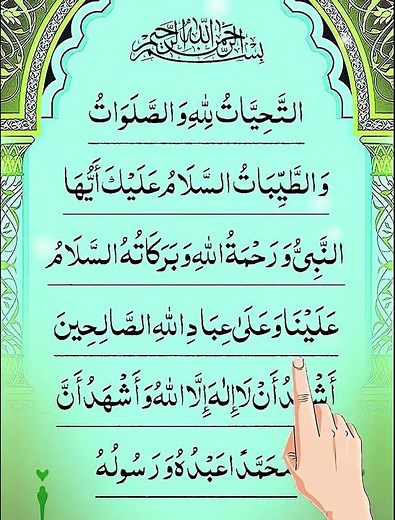 بِسْمِ اللهِ الرَّحْمٰنِ الرَّحِيمِ
التَّحِيَّاتُ لِلّٰهِ وَالصَّلَوَاتُ
وَالطَّيِّبَاتُ السَّلَامُ عَلَيْكَ أَيُّهَا
النَّبِيُّ وَرَحْمَةُ اللهِ وَبَرَكَاتُهُ السَّلَامُ
عَلَيْنَا وَعَلَىٰ عِبَادِ اللهِ الصَّالِحِينَ
أَشْهَدُ أَنْ لَا إِلٰهَ إِلَّا اللهُ وَأَشْهَدُ أَنَّ
مُحَمَّدًا عَبْدُهُ وَرَسُولُهُ